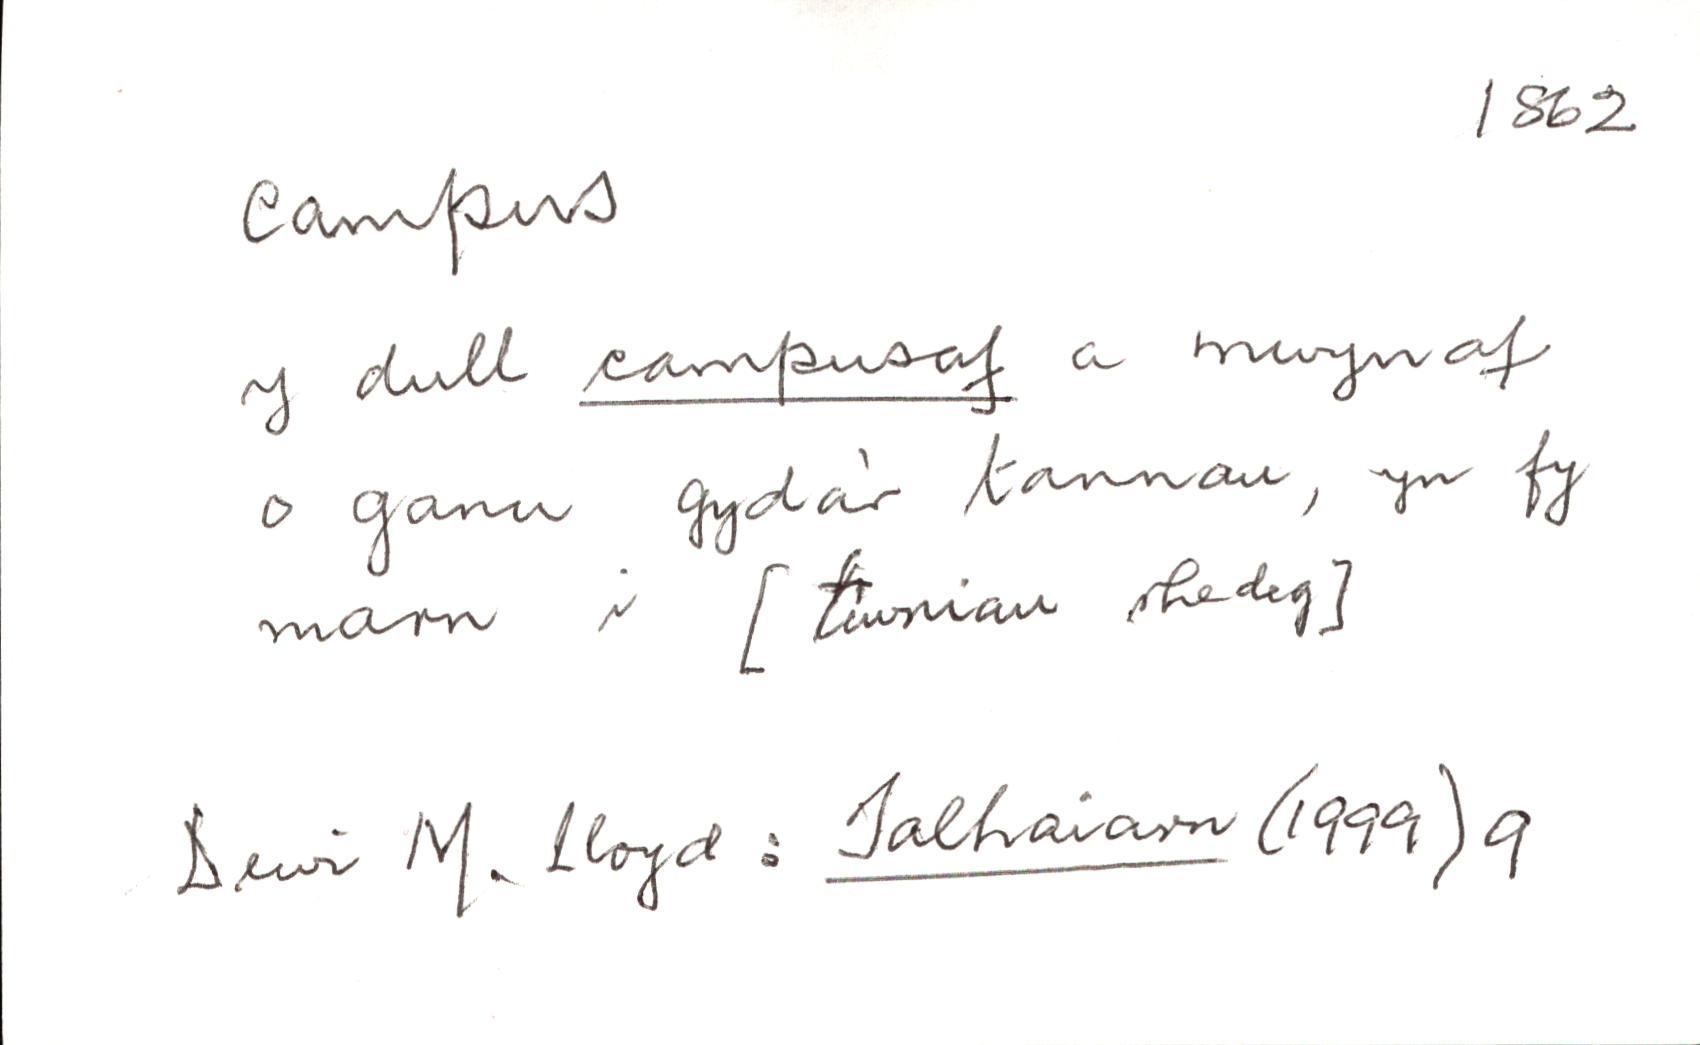 1862
campus
y dull campusaf a mwynaf
o ganu gyda'r tannau, yn fy
marn i [tiwniau rhedeg]
Dewi M. Lloyd : Talhaiarn (1999) 9